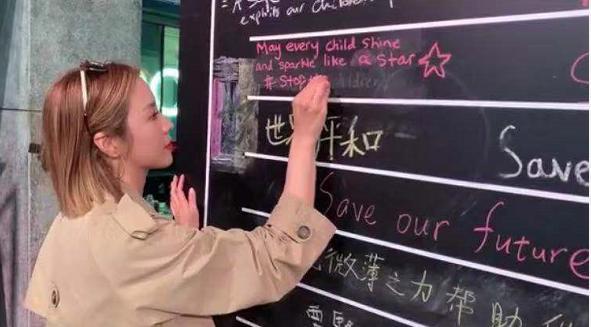 exploits our children
May every child Shine
and sparkle like a star
# Stop
世界平和
Save
Save our future
微薄之力帮助